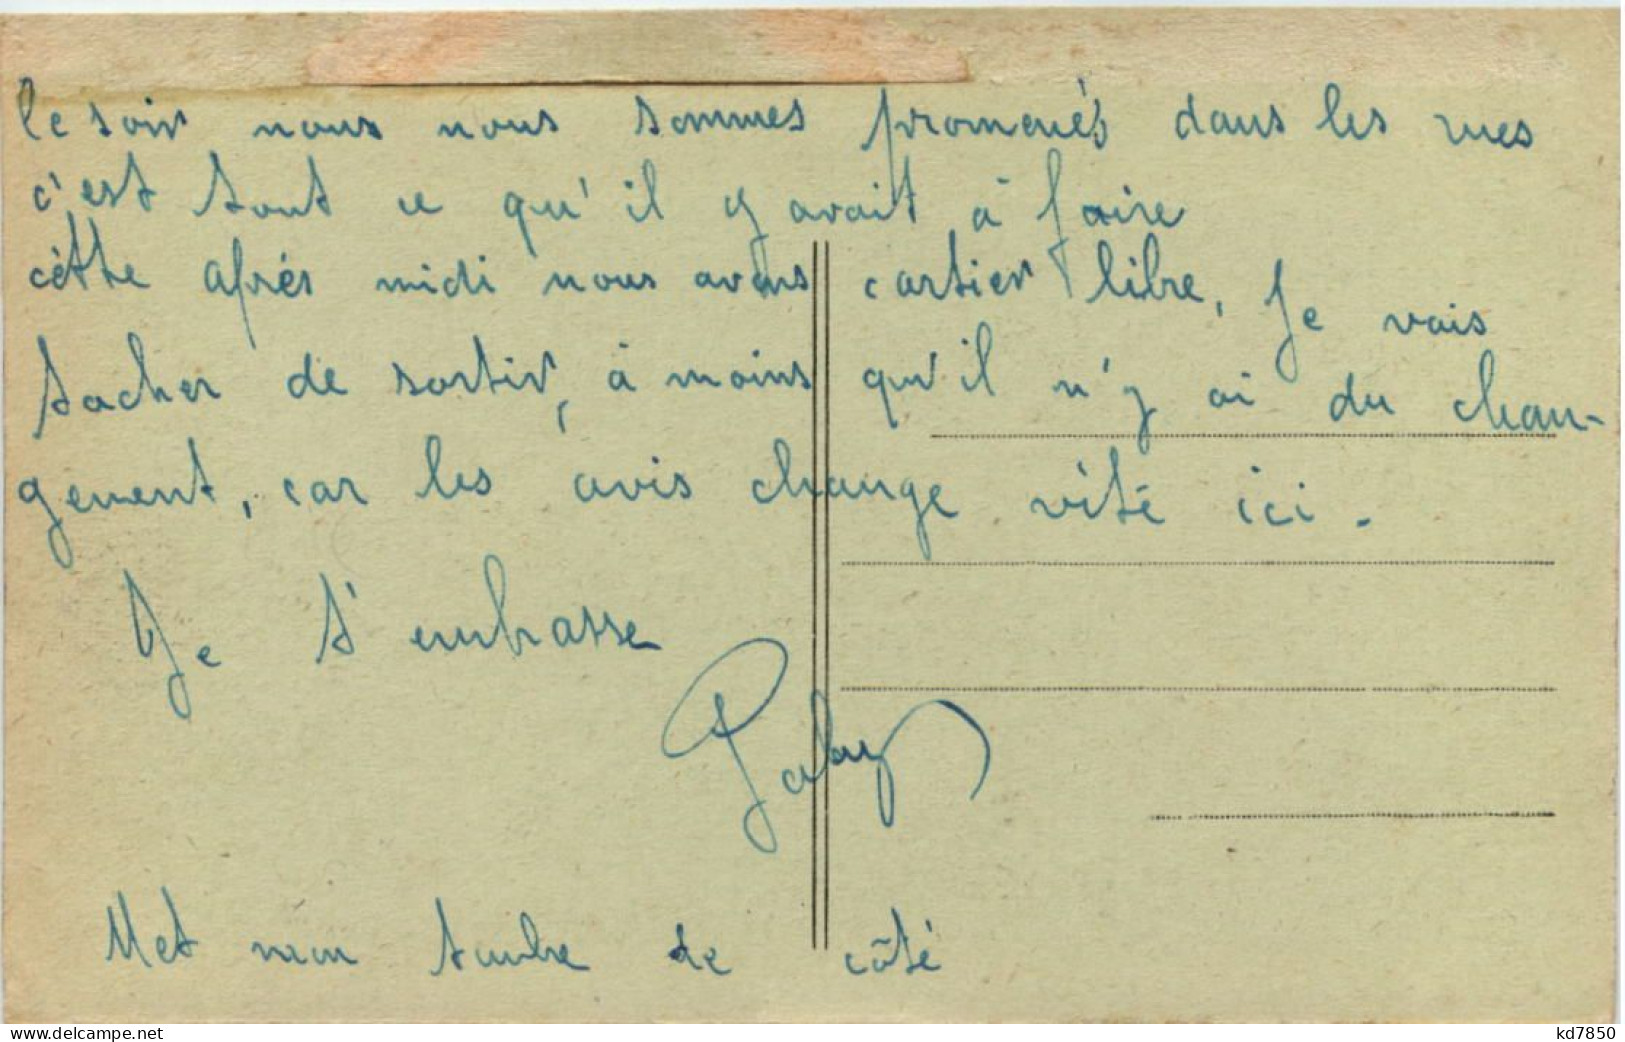 le soir nous nous sommes promenés dans les rues
c'est tout ce qu'il y avait à faire
cètte après midi nous avons cartier libre, Je vais
tacher de sortir, à moins qu'il n'y ai du chan-
gement, car les avis change vite ici.
Je t'embrasse
Gaby
Met mon timbre de côté
www.delcampe.net
kd7850